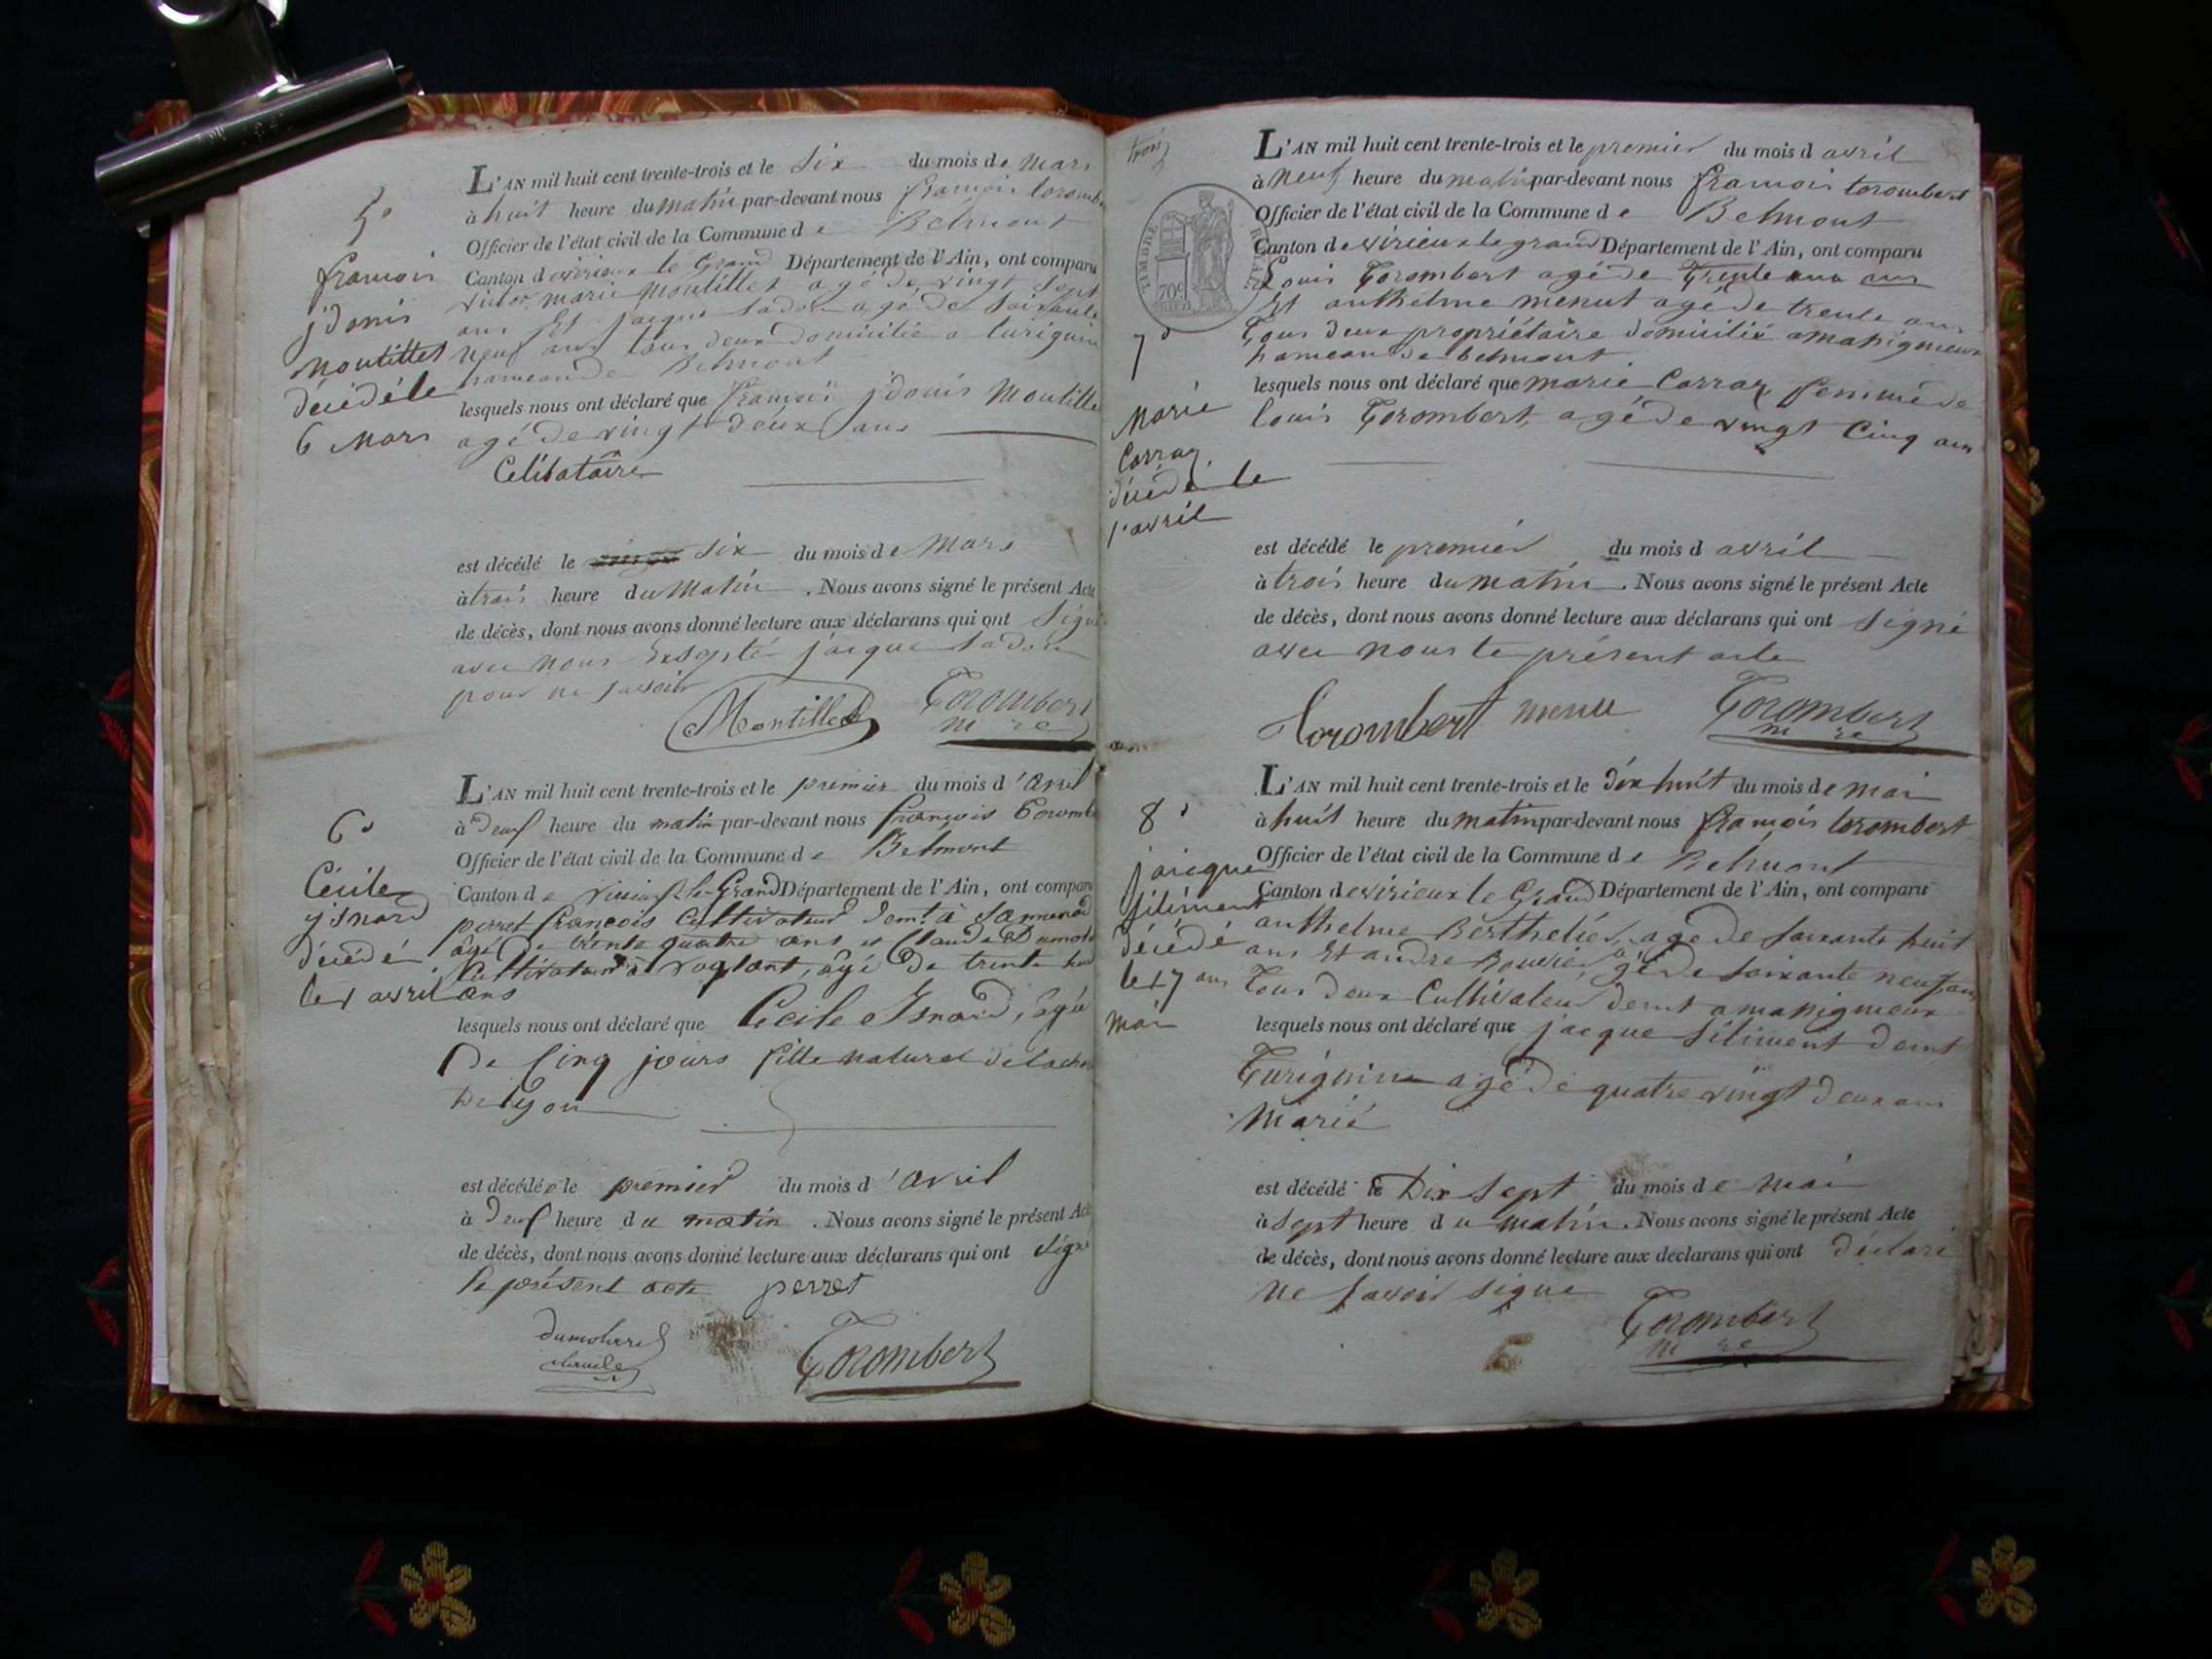 5°
françois
jdonis
Moutillet
décédé le
6 Mars
L'AN mil huit cent trente-trois et le Six du mois de Mars
à huit heure du Matin par-devant nous françois torombe
Officier de l'état civil de la Commune de Belmont
Canton de virieux le Grand Département de l'Ain, ont comparu
victor marie Moutillet agé de vingt Sept
ans Et jacque sadin agé de Soixante
Neuf ans tous deux Domicilié a turignin
hameau de Belmont
lesquels nous ont déclaré que françois jdonis Moutille
agé de vingt deux ans
Célibataire
est décédé le six du mois de Mars
à trois heure du Matin . Nous avons signé le présent Acte
de décès, dont nous avons donné lecture aux déclarans qui ont Signé
avec nous Excepté jacque sadin
pour ne savoir
Montillet Torombert
m re
6°
Cécile
ysnard
décédé
le 1 avril
L'AN mil huit cent trente-trois et le premier du mois d'avril
à Deuf heure du matin par-devant nous françois Torombe
Officier de l'état civil de la Commune de Belmont
Canton de Virieux-le-Grand Département de l'Ain, ont comparu
perret françois Cultivateur demt. à
âgé De trente quatre ans et Claude Dumola
Cultivateur à voglant, âgé De trente huit
ans
lesquels nous ont déclaré que Cécile Isnard, âgée
De Cinq jours fille naturel de
De lyon
est décédée le premier du mois d'avril
à Deuf heure du matin . Nous avons signé le présent Acte
de décès, dont nous avons donné lecture aux déclarans qui ont signé
le présent acte perret
Dumolard
claude
Torombert
trois
TIMBRE ROYAL
70c
7°
Marie
Carraz
décédé le
1er avril
L'AN mil huit cent trente-trois et le premier du mois d avril
à Neuf heure du matin par-devant nous françois torombert
Officier de l'état civil de la Commune de Belmont
Canton de virieux le grand Département de l'Ain, ont comparu
Louis Torombert agé de Trente ans
Et anthelme menut agé de trente ans
Tous deux propriétaire domicilié a massigneux
hameau de belmont
lesquels nous ont déclaré que marie Carraz femme de
louis Torombert, agé de vingt Cinq ans
est décédé le premier du mois d avril
à trois heure du matin . Nous avons signé le présent Acte
de décès, dont nous avons donné lecture aux déclarans qui ont Signé
avec nous le présent acte
Torombert menu Torombert
m re
8°
jaicque
filiment
décédé
le 17
mai
L'AN mil huit cent trente-trois et le dix huit du mois de mai
à huit heure du matin par-devant nous françois torombert
Officier de l'état civil de la Commune de Belmont
Canton de virieux le Grand Département de l'Ain, ont comparu
anthelme Berthelier, agé de soixante huit
ans Et andre Bouvier agé de soixante neuf ans
Tous deux Cultivateur demt a massigneux
lesquels nous ont déclaré que jacque filiment demt
Turignin agé de quatre vingt deux ans
Marié
est décédé le Dix Sept du mois de mai
à sept heure du matin . Nous avons signé le présent Acte
de décès, dont nous avons donné lecture aux déclarans qui ont déclaré
ne savoir signe
Torombert
m re